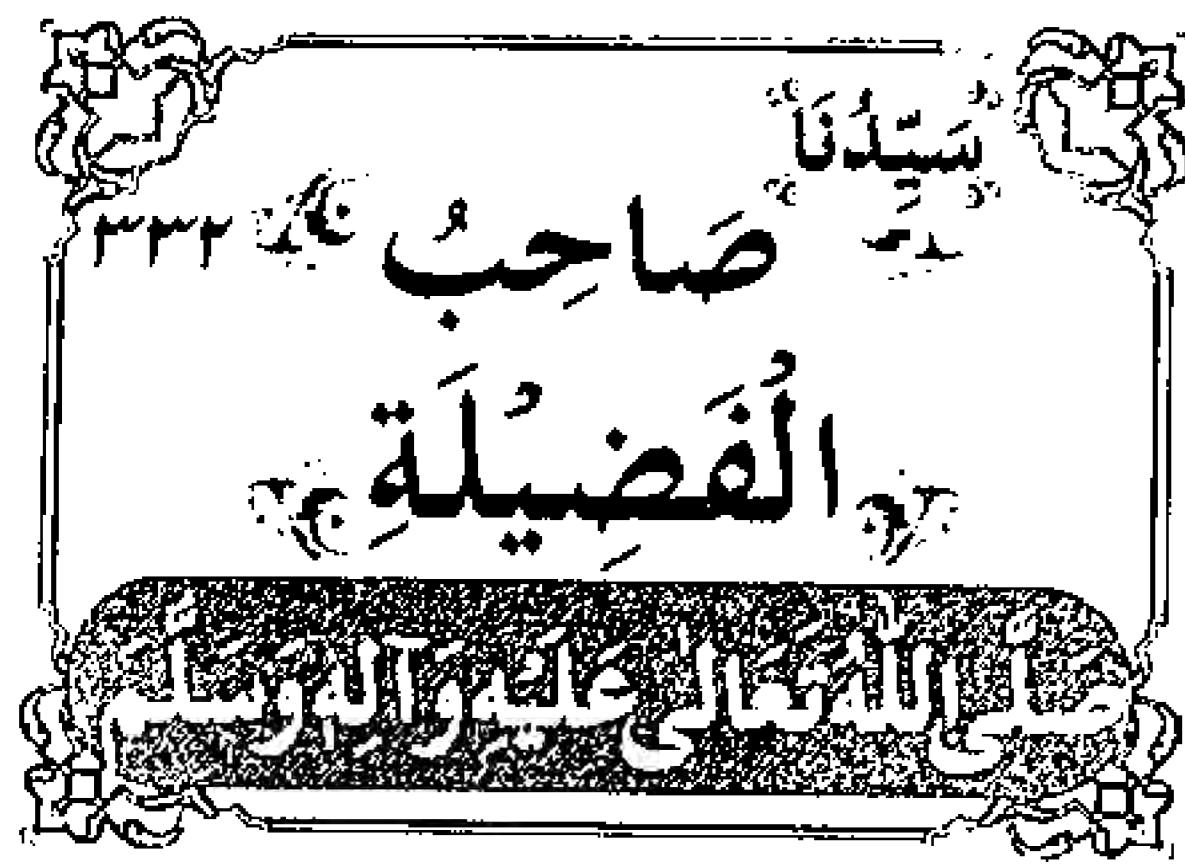 سَيِّدُنَا
صَاحِبُ
٣٣٢
الْفَضِيْلَةِ
صَلَّى اللهُ تَعَالىٰ عَلَيْهِ وَآلِهِ وَسَلَّم